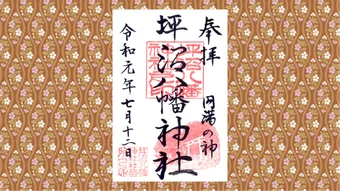 奉拝
円満の神
坪沼八幡神社
令和元年七月十二日